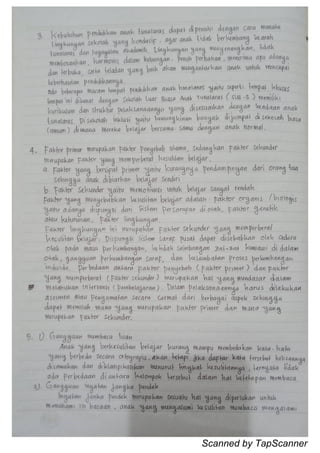 3. Kebutuhan pendidikan anak tunalaras dapat dipenuhi dengan cara menata
lingkungan sekolah yang kondusif, agar anak tidak berkembang kearah
tunalaras dan kegagalan akademik. Lingkungan yang menyenangkan, tidak
membosankan, harmonis dalam hubungan, penuh perhatian, menerima apa adanya
dan terbuka, serta teladan yang baik akan mengantarkan anak untuk mencapai
keberhasilan pendidikannya.
Ada beberapa macam tempat pendidikan anak tunalaras yaitu seperti tempat khusus
tempat ini dikenal dengan Sekolah Luar Biasa Anak Tunalaras (SLB-E) memiliki
kurikulum dan struktur pelaksanaannya yang disesuaikan dengan keadaan anak
tunalaras. Di sekolah inklusi yaitu memungkinkan banyak dijumpai disekolah biasa
(umum) dimana mereka belajar bersama sama dengan anak normal.
4. Faktor primer merupakan faktor penyebab utama, sedangkan faktor sekunder
merupakan faktor yang memperberat kesulitan belajar.
a. Faktor yang bersifat primer yaitu kurangnya pendampingan dari orang tua
sehingga anak dibiarkan belajar sendiri
b. Faktor Sekunder yaitu memotivasi untuk belajar sangat rendah.
Faktor yang menyebabkan kesulitan belajar adalah faktor organis / biologis
yaitu adanya disfungsi dari sistem persyarafan di otak, faktor genetik
atau keturunan, faktor lingkungan.
Faktor lingkungan ini merupakan faktor sekunder yang memperberat
kesulitan belajar. Disfungsi sistem saraf pusat dapat disebabkan oleh cedera
otak pada masa perkembangan, ketidak seimbangan zat-zat kimiawi di dalam
otak, gangguan perkembangan saraf, dan kelambatan proses perkembangan
individu. Perbedaan antara faktor penyebab (faktor primer) dan faktor
yang memperberat (faktor sekunder) merupakan hal yang mendasar dalam
melakukan intervensi (pembelajaran). Dalam pelaksanaannya harus dilakukan
asesmen atau pengamatan secara cermat dari berbagai aspek sehingga
dapat memilah mana yang merupakan faktor primer dan mana yang
merupakan faktor sekunder.
5. 1) Gangguan membaca lisan
Anak yang berkesulitan belajar kurang mampu membedakan kata-kata
yang berbeda secara ortograpis, akan tetapi jika daftar kata tersebut kekerapannya
disamakan dan diklasifikasikan menurut tingkat kesulitannya, ternyata tidak
ada perbedaan diantara kelompok tersebut dalam hal ketetapan membaca
2) Gangguan ingatan jangka pendek
Ingatan jangka pendek merupakan sesuatu hal yang diperlukan untuk
memahami isi bacaan, anak yang mengalami kesulitan membaca mengalami
Scanned by TapScanner